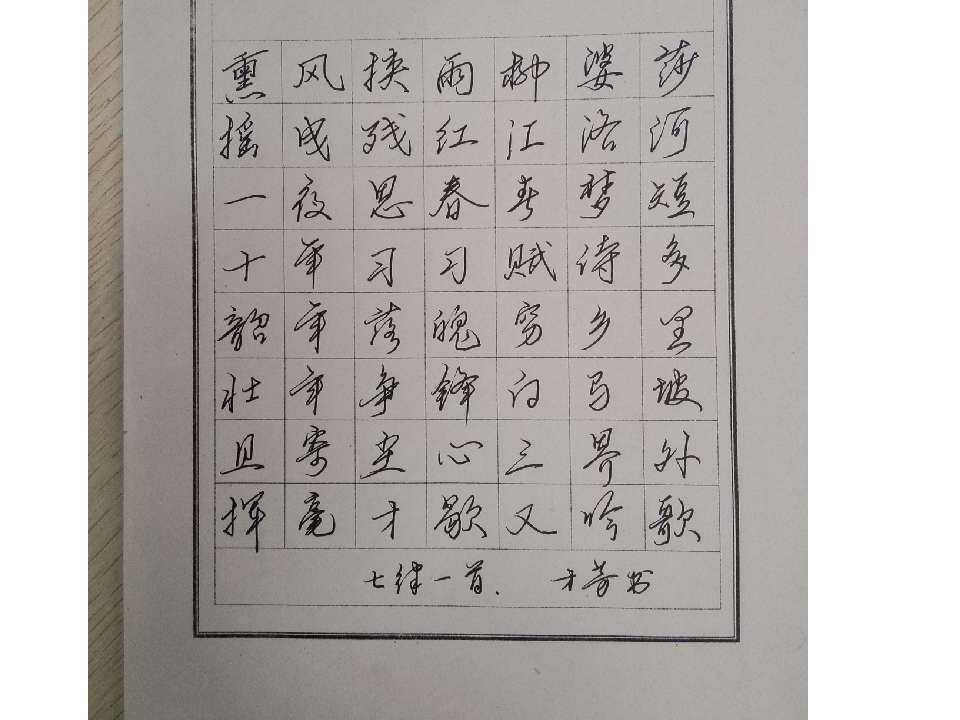 熏风挟雨柳婆莎
摇曳残红江洛河
一夜思春春梦短
十年习习赋诗多
韶年落魄穷乡里
壮年争锋白马坡
且寄尘心三界外
挥毫才歇又吟歌
七律一首、 才芳书